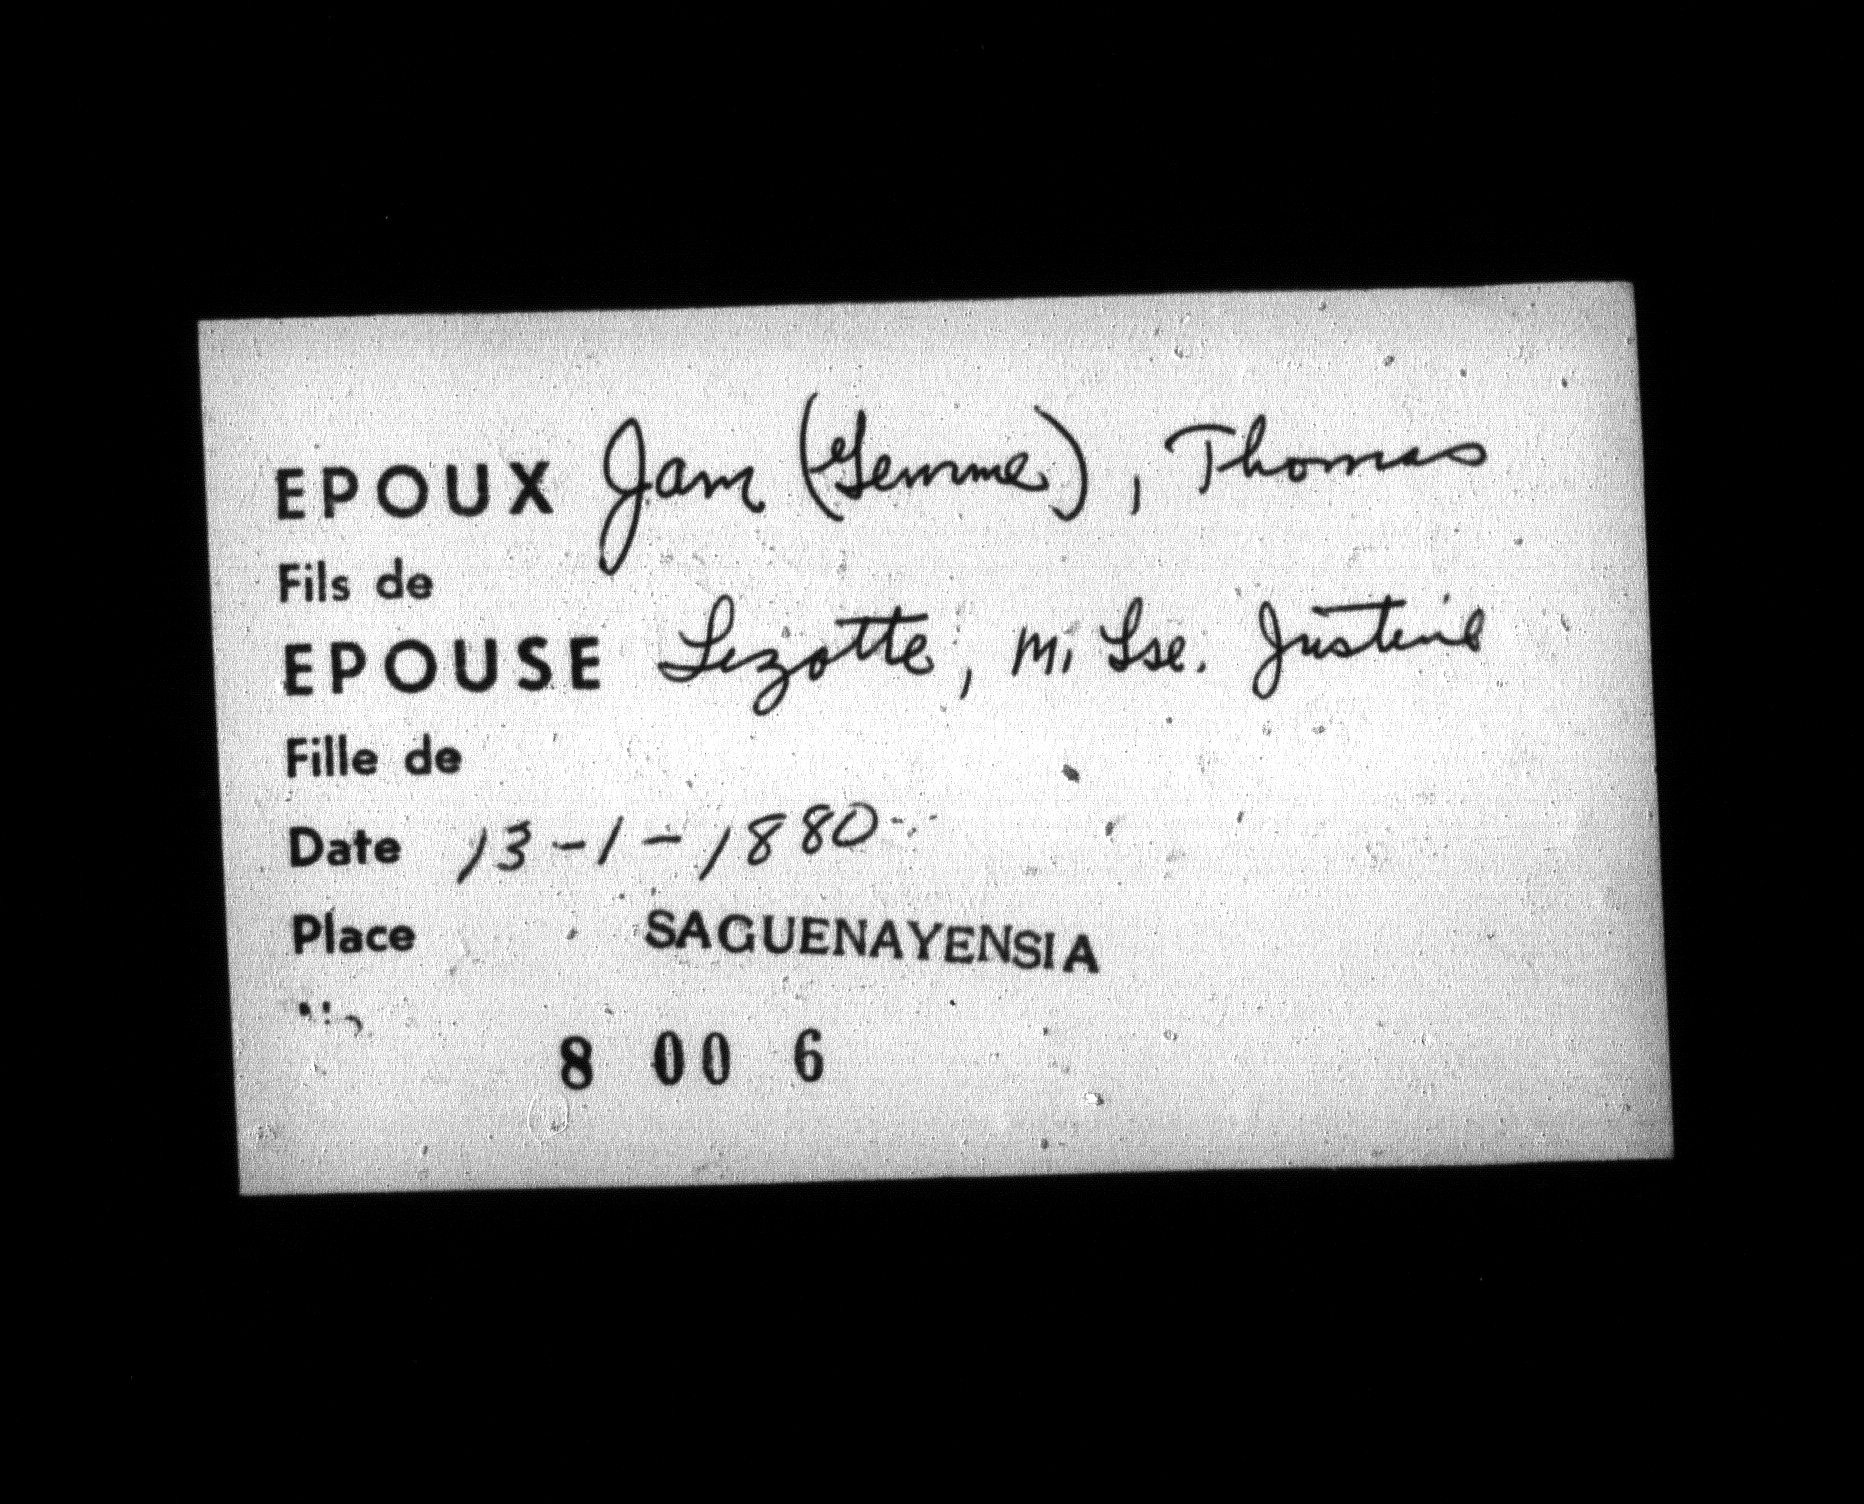 EPOUX Jam (Gemme), Thomas
Fils de
EPOUSE Lizotte, M. Lse. Justine
Fille de
Date 13-1-1880
Place SAGUENAYENSIA
8 00 6